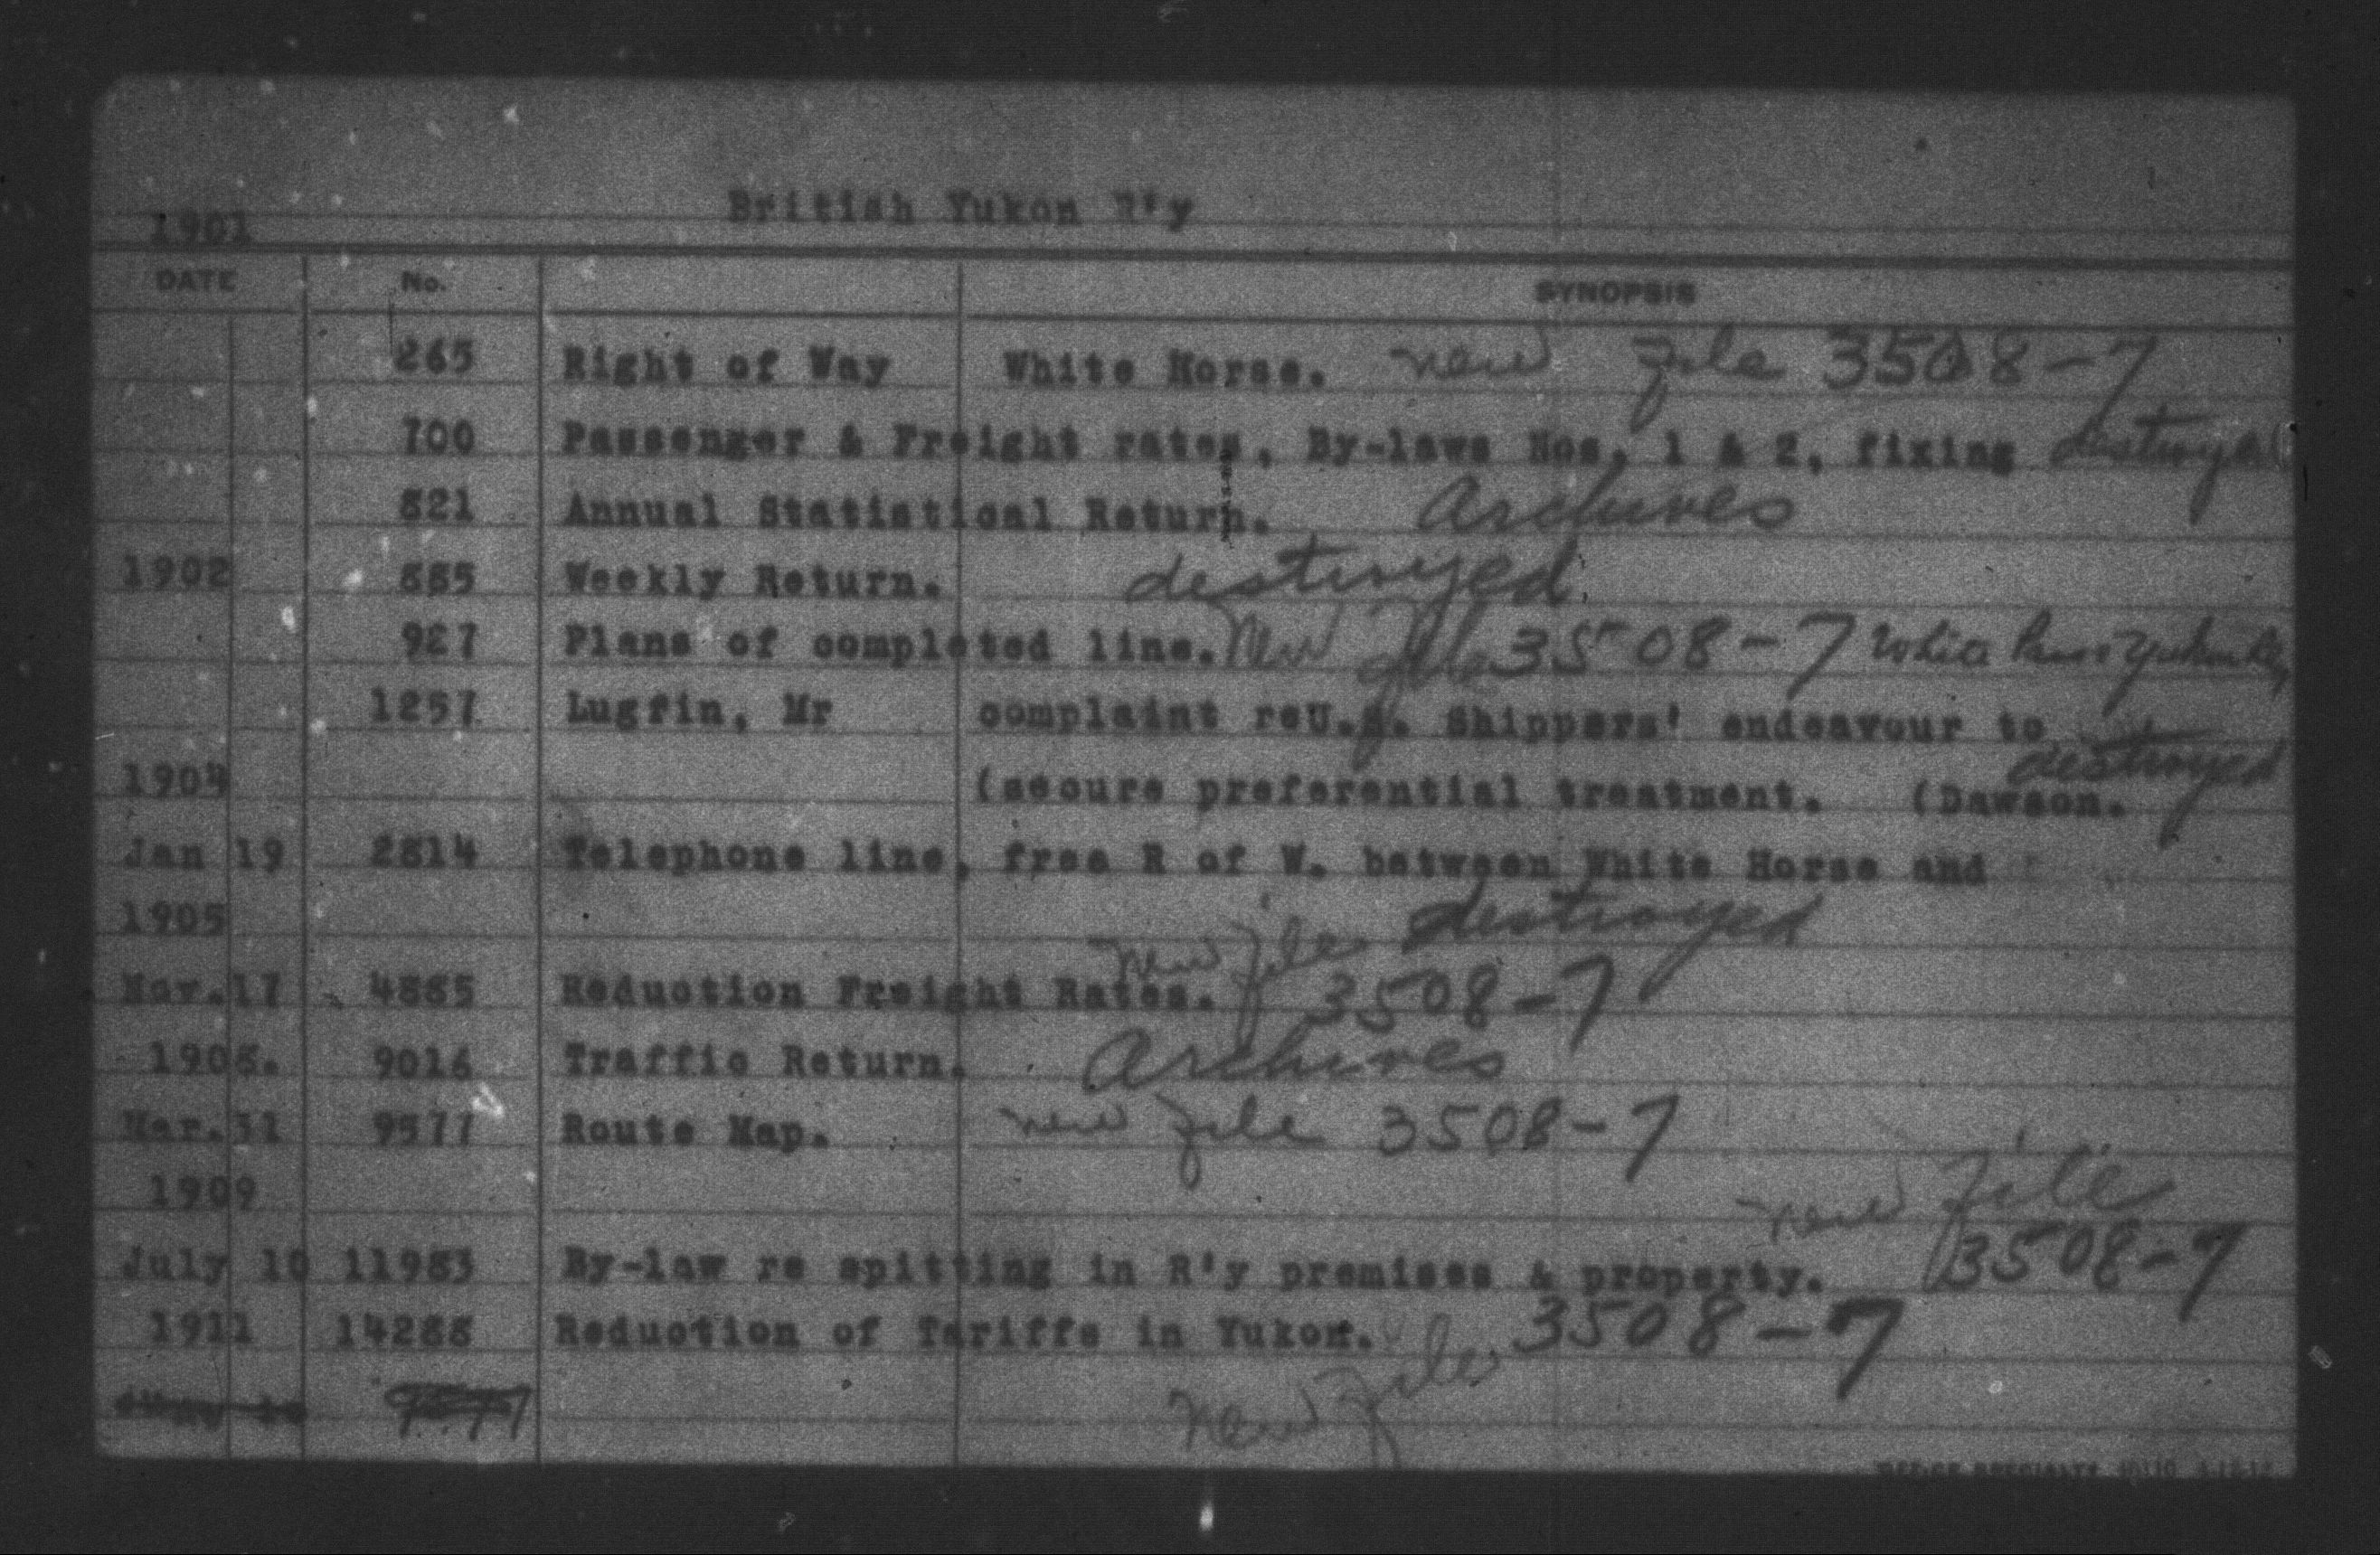 British Yukon R'y
1901
DATE No. SYNOPSIS
265 Right of Way White Horse. new file 3508-7
700 Passenger & Freight rates, By-laws Nos. 1 & 2, fixing destroyed
821 Annual Statistical Return. Archives
1902 885 Weekly Return. destroyed
927 Plans of completed line. New file 3508-7 White Pass & Yukon Ry
1257 Lugfin, Mr complaint reU.S. Shippers' endeavour to
destroyed
1904 (secure preferential treatment. (Dawson.
Jan 19 2814 Telephone line, free R of W. between White Horse and
1905 destroyed
new file
17 4885 Reduction Freight Rates. 3508-7
9016 Traffic Return. Archives
Mar.31 9577 Route Map. new file 3508-7
1909 new file
July 10 11983 By-law re spitting in R'y premises & property. 3508-7
1911 14288 Reduction of Tariffs in Yukon. 3508-7
new file
OFFICE SPECIALTY